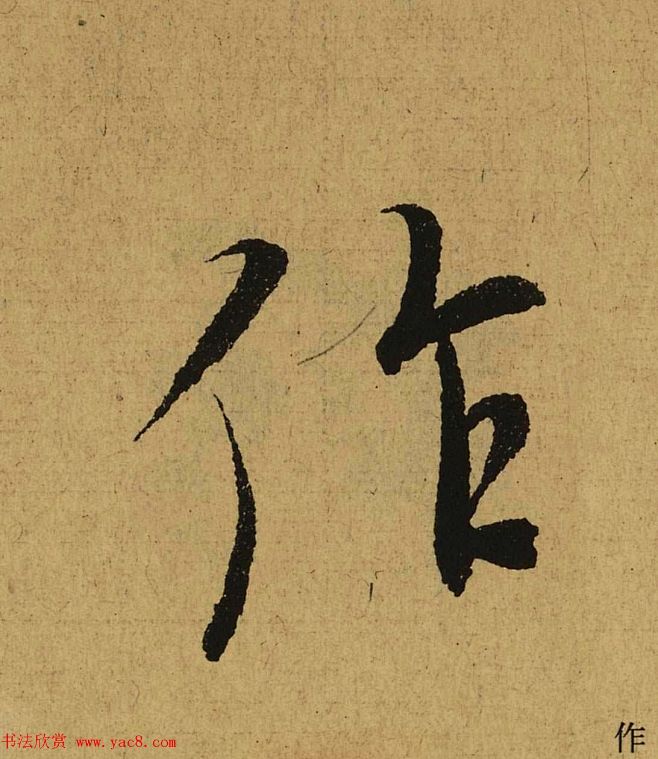 作
书法欣赏 www.yac8.com
作